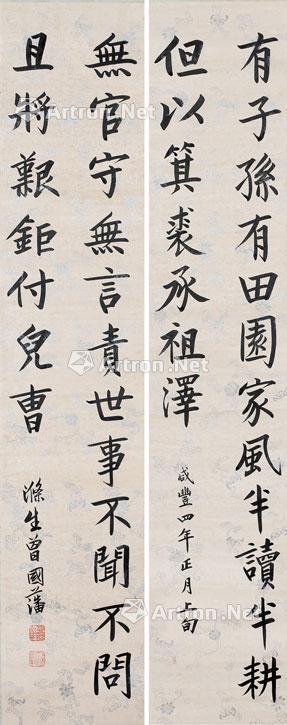 有子孫有田園家風半讀半耕
但以箕裘承祖澤
咸豐四年正月上旬
無官守無言責世事不聞不問
且將艱鉅付兒曹
滌生曾國藩
Artron.Net